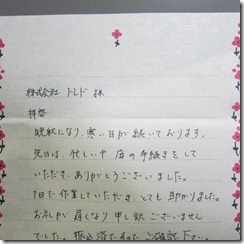 株式会社 トレド 様
拝啓
晩秋になり、寒い日が続いております。
先日は、忙しい中 庭の手続きをして
いただき、ありがとうございました。
1日で作業していただき、とても助かりました。
お礼が遅くなり申し訳ございません
でした。振込 ご確認 下さい。